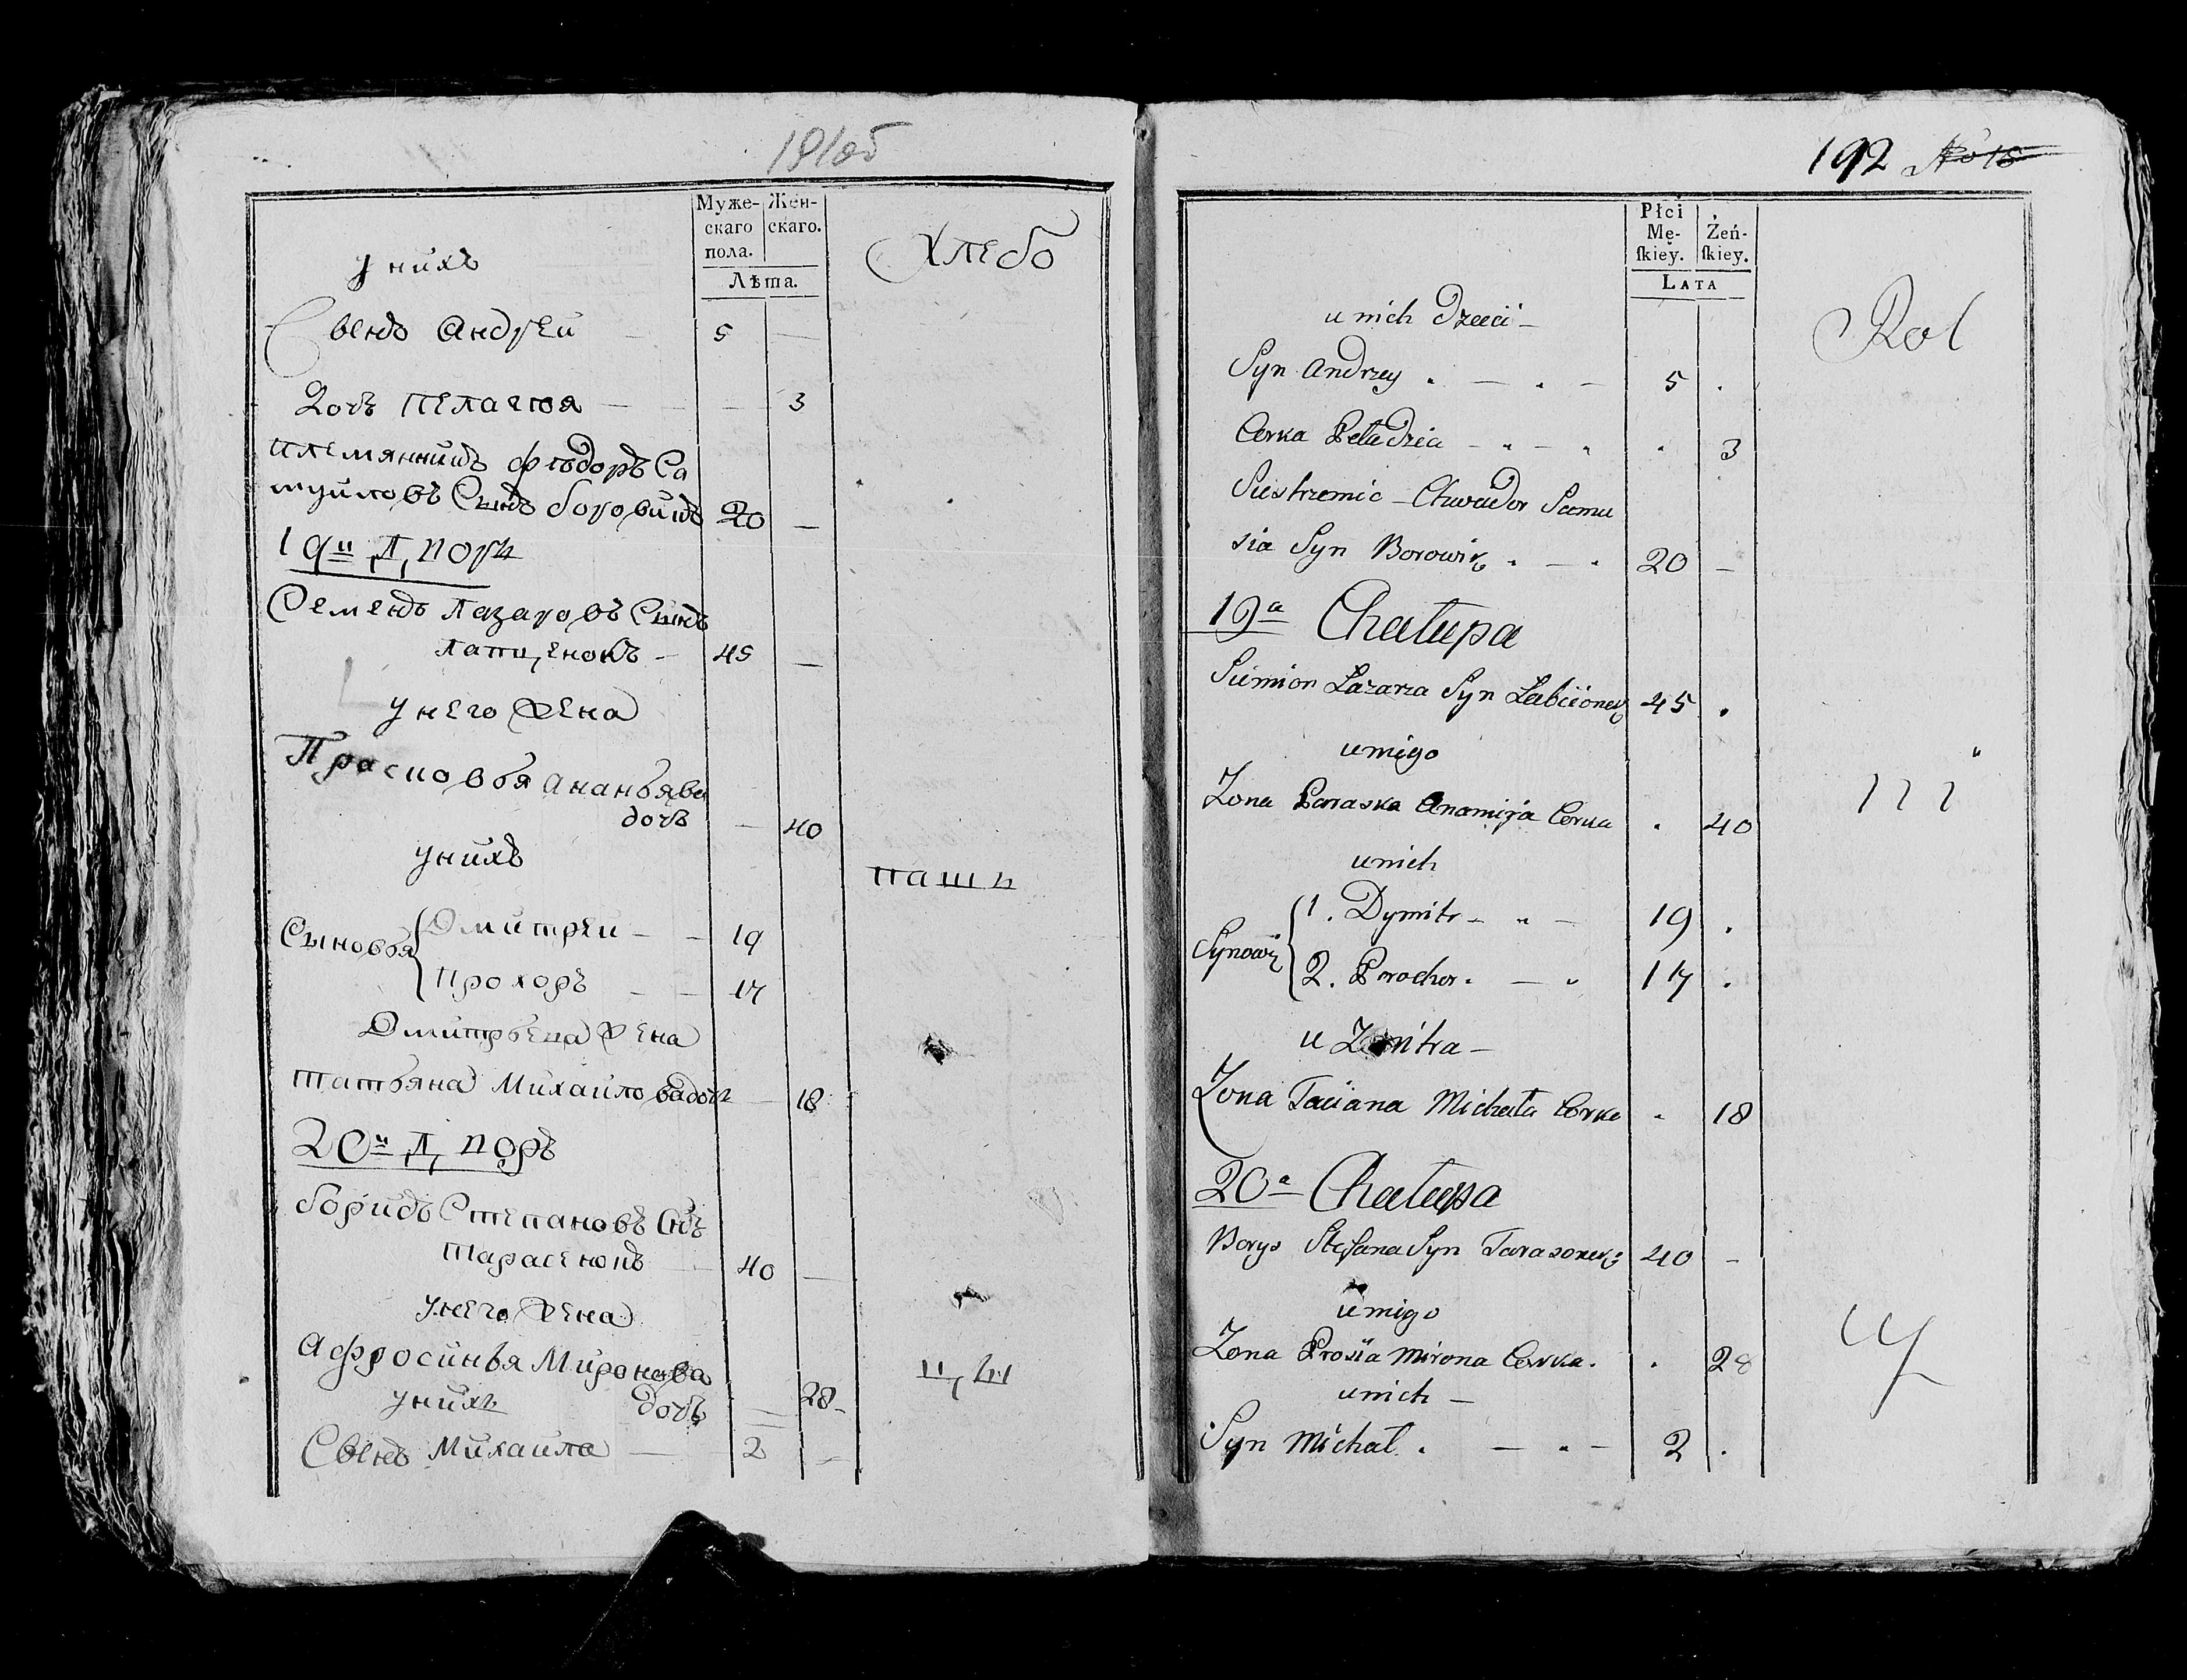 191об
Муже-
скаго
пола.
Жен-
скаго.
Лѣта.
Хлебо
унихъ
Сынъ Андрей 5
Дочь Пелагея 3
племянникъ Фёдоръ Са
муиловъ Сынъ боровикъ 20
19й Д, поръ
Семенъ Лазаровъ Сынъ
Лапценокъ 45
унего жена
Прасковья Ананьява
дочь 40
унихъ
паш
Сыновья
Дмитрей 19
Прохоръ 17
Дмитрьева жена
татьяна Михайлова дочь 18
20й Д, поръ
борисъ Степановъ Снъ
тарасенокъ 40
унего жена
Афросинья Миронова
унихъ дочь 28
Сынъ Михаила 2
192 No 18
Płci
Mę-
skiey.
Żeń-
skiey.
LATA
Rol
u nich Dzieci
Syn Andrzey 5
Corka Peladzia 3
Siestrzenic Chwiador Samu
sia Syn Borowik 20
19a Chalupa
Siemion Łazarza Syn Łabcionek 45
uniego
Zona Paraska Anamija Corka 40
unich
Synowie
1. Dymitr 19
2. Prochor 17
u Zmitra
Zona Taciana Michała Corka 18
20a Chalupa
Borys Stefana Syn Tarasonek 40
uniego
Zona Prosia Mirona Corka 28
unich
Syn Michał 2